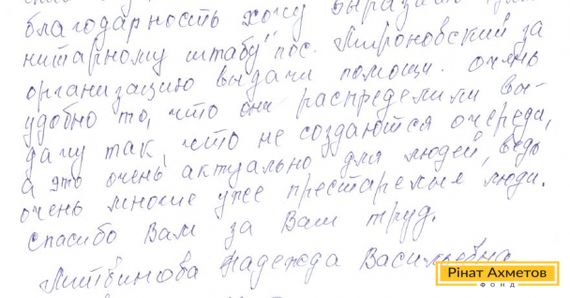 благодарность хочу выразить
нитарному штабу "пос. Мироновский за
организацию выдачи помощи. Очень
удобно то, что они распределили вы-
дачу так, что не создаются очереди,
а это очень актуально для людей, ведь
очень многие уже престарелые люди.
Спасибо Вам за Ваш труд.
Литвинова Надежда Васильевна
Рінат Ахметов
ФОНД